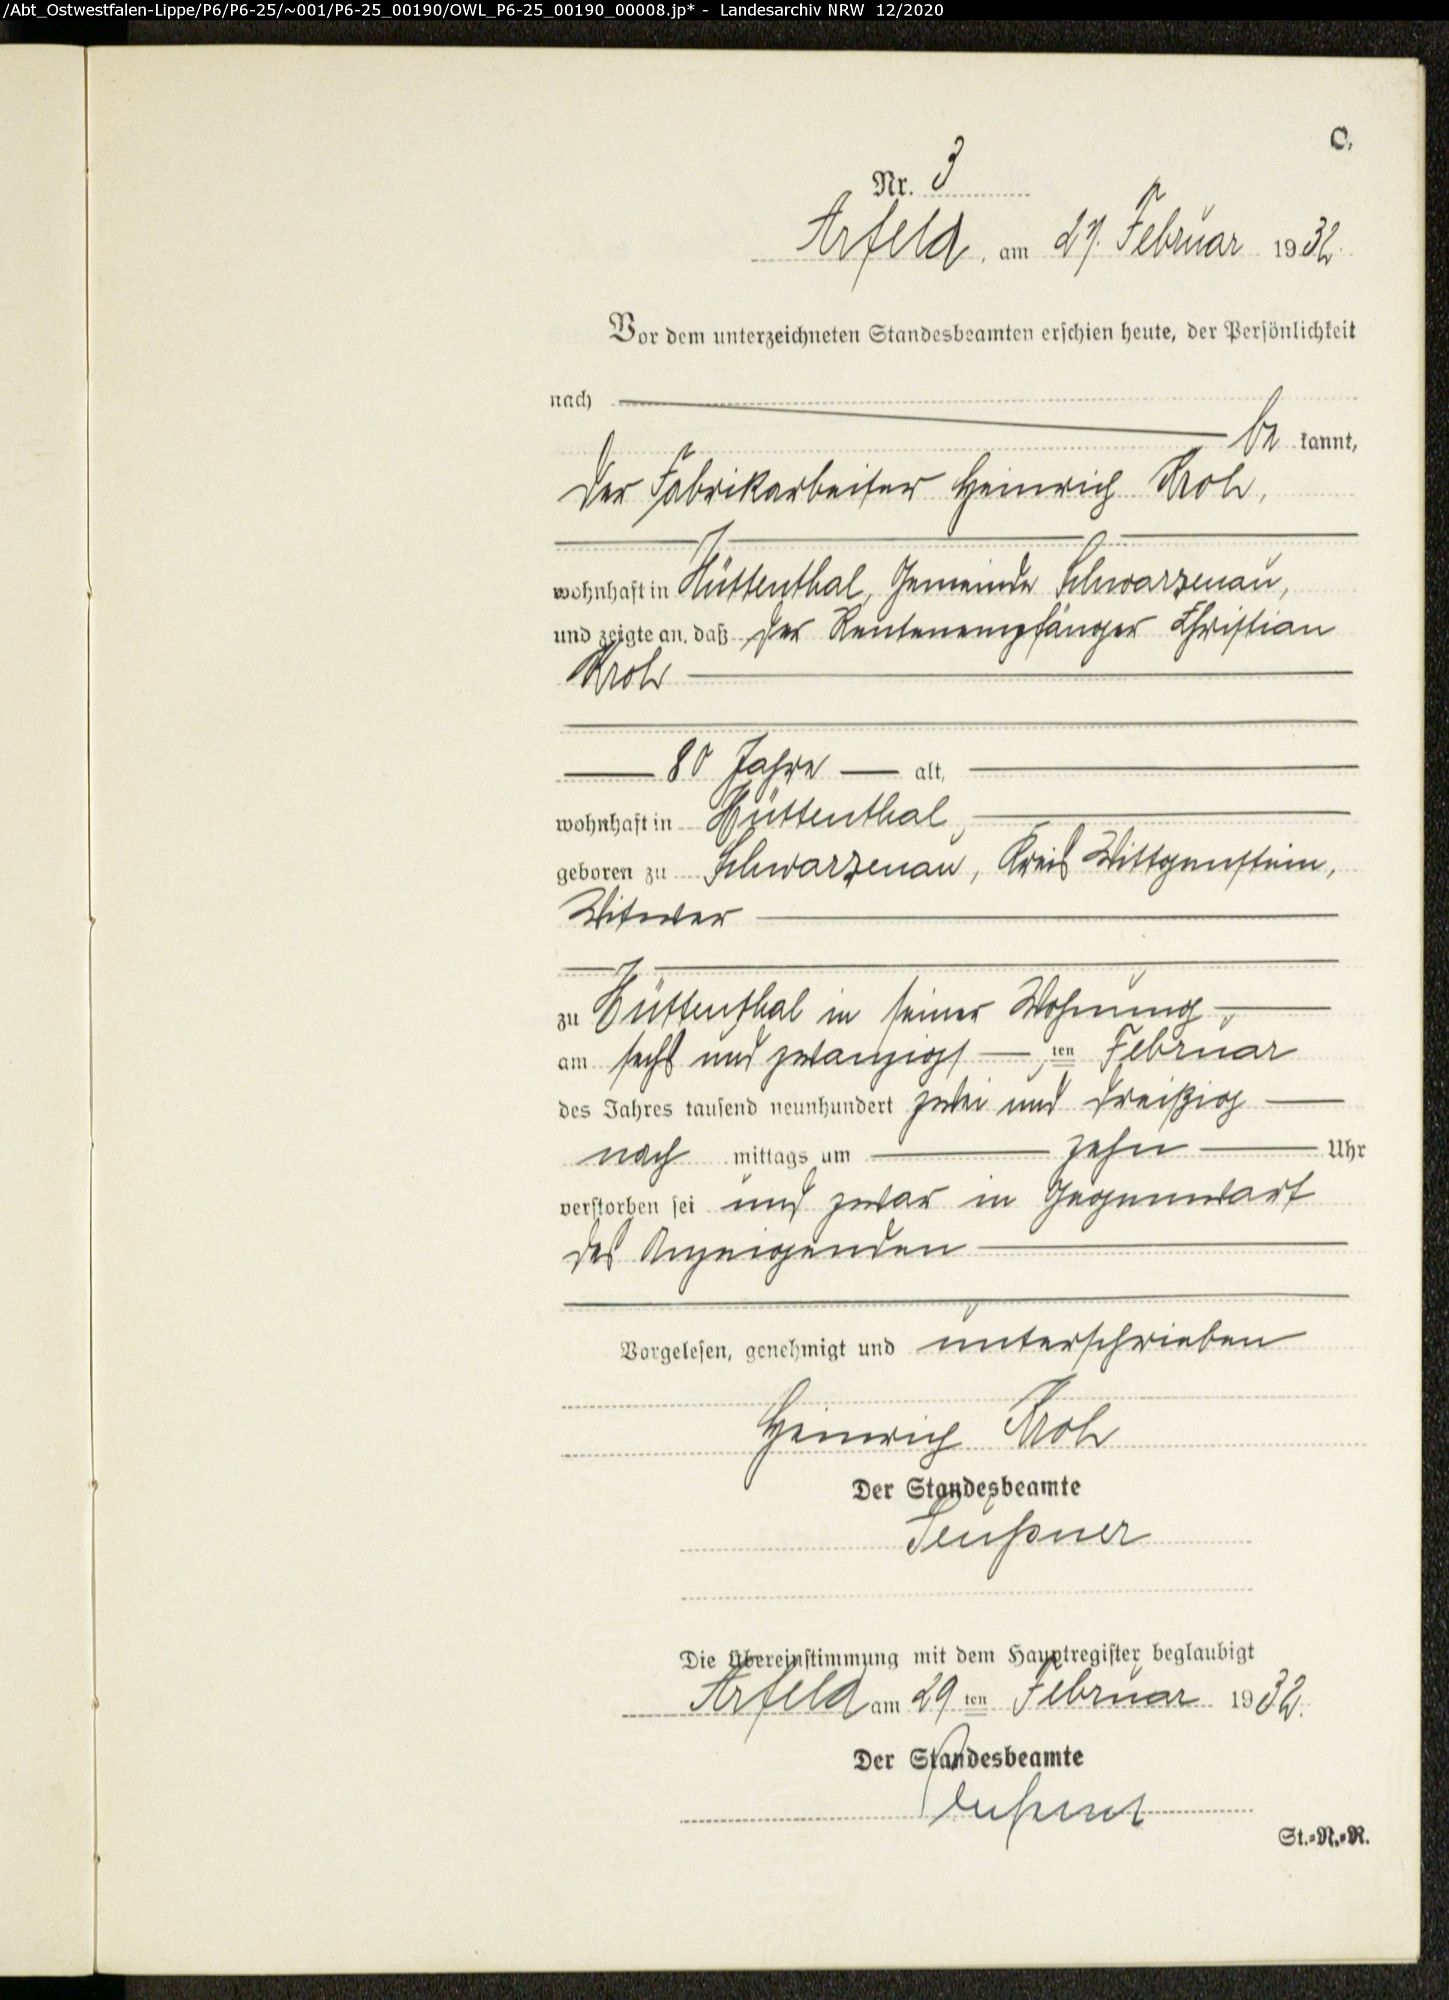 /Abt_Ostwestfalen-Lippe/P6/P6-25/~001/P6-25_00190/OWL_P6-25_00190_00008.jp* - Landesarchiv NRW 12/2020
C.
Nr. 3
Arfeld, am 27. Februar 1932.
Vor dem unterzeichneten Standesbeamten erschien heute, der Persönlichkeit
nach
be kannt,
der Fabrikarbeiter Heinrich Kroh,
wohnhaft in Hüttenthal, Gemeinde Schwarzenau,
und zeigte an, daß der Rentenempfänger Christian
Kroh
80 Jahre alt,
wohnhaft in Hüttenthal,
geboren zu Schwarzenau, Kreis Wittgenstein,
Witwer
zu Hüttenthal in seiner Wohnung,
am sechs und zwanzigs ten Februar
des Jahres tausend neunhundert zwei und dreißig
nach mittags um zehn Uhr
verstorben sei und zwar in Gegenwart
des Anzeigenden
Vorgelesen, genehmigt und unterschrieben
Heinrich Kroh
Der Standesbeamte
Die Übereinstimmung mit dem Hauptregister beglaubigt
Arfeld am 29 ten Februar 1932.
Der Standesbeamte
St.=N.=R.